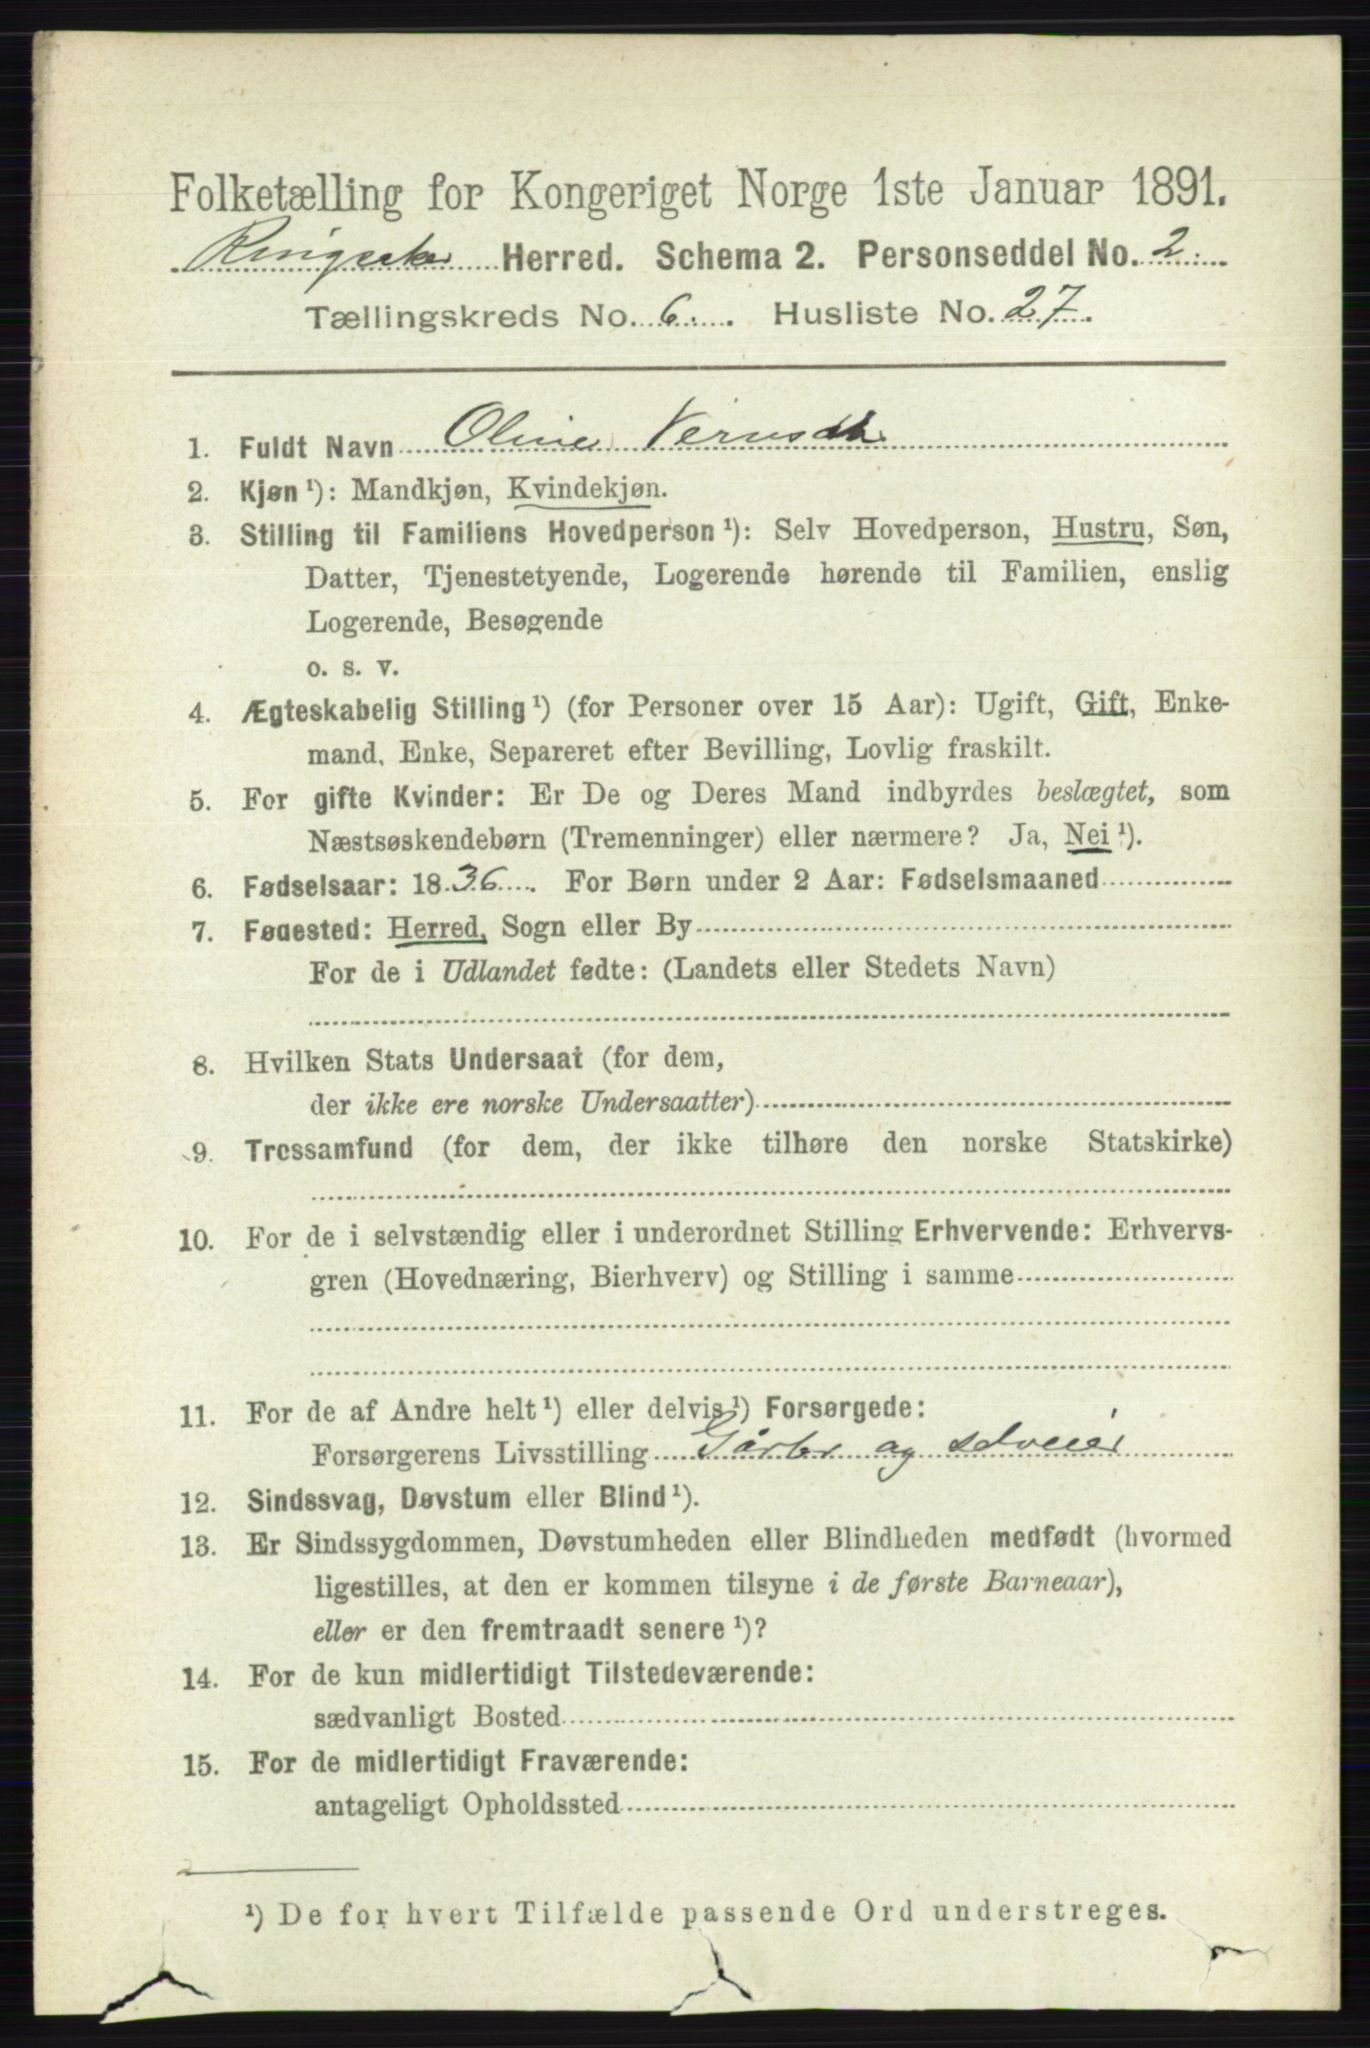 Folketælling for Kongeriget Norge 1ste Januar 1891.
Ringsaker Herred. Schema 2. Personseddel No. 2.
Tællingskreds No. 6. Husliste No. 27.
1. Fuldt Navn Oline
2. Kjøn ¹): Mandkjøn, Kvindekjøn.
3. Stilling til Familiens Hovedperson ¹): Selv Hovedperson, Hustru, Søn,
Datter, Tjenestetyende, Logerende hørende til Familien, enslig
Logerende, Besøgende
o. s. v.
4. Ægteskabelig Stilling ¹) (for Personer over 15 Aar): Ugift, Gift, Enke-
mand, Enke, Separeret efter Bevilling, Lovlig fraskilt.
5. For gifte Kvinder: Er De og Deres Mand indbyrdes beslægtet, som
Næstsøskendebørn (Tremenninger) eller nærmere? Ja, Nei ¹).
6. Fødselsaar: 1836. For Børn under 2 Aar: Fødselsmaaned
7. Fødested: Herred, Sogn eller By
For de i Udlandet fødte: (Landets eller Stedets Navn)
8. Hvilken Stats Undersaat (for dem,
der ikke ere norske Undersaatter)
9. Trossamfund (for dem, der ikke tilhøre den norske Statskirke)
10. For de i selvstændig eller i underordnet Stilling Erhvervende: Erhvervs-
gren (Hovednæring, Bierhverv) og Stilling i samme
11. For de af Andre helt ¹) eller delvis ¹) Forsørgede:
Forsørgerens Livsstilling Gårbr og selveier
12. Sindssvag, Døvstum eller Blind ¹).
13. Er Sindssygdommen, Døvstumheden eller Blindheden medfødt (hvormed
ligestilles, at den er kommen tilsyne i de første Barneaar),
eller er den fremtraadt senere ¹)?
14. For de kun midlertidigt Tilstedeværende:
sædvanligt Bosted
15. For de midlertidigt Fraværende:
antageligt Opholdssted
¹) De for hvert Tilfælde passende Ord understreges.